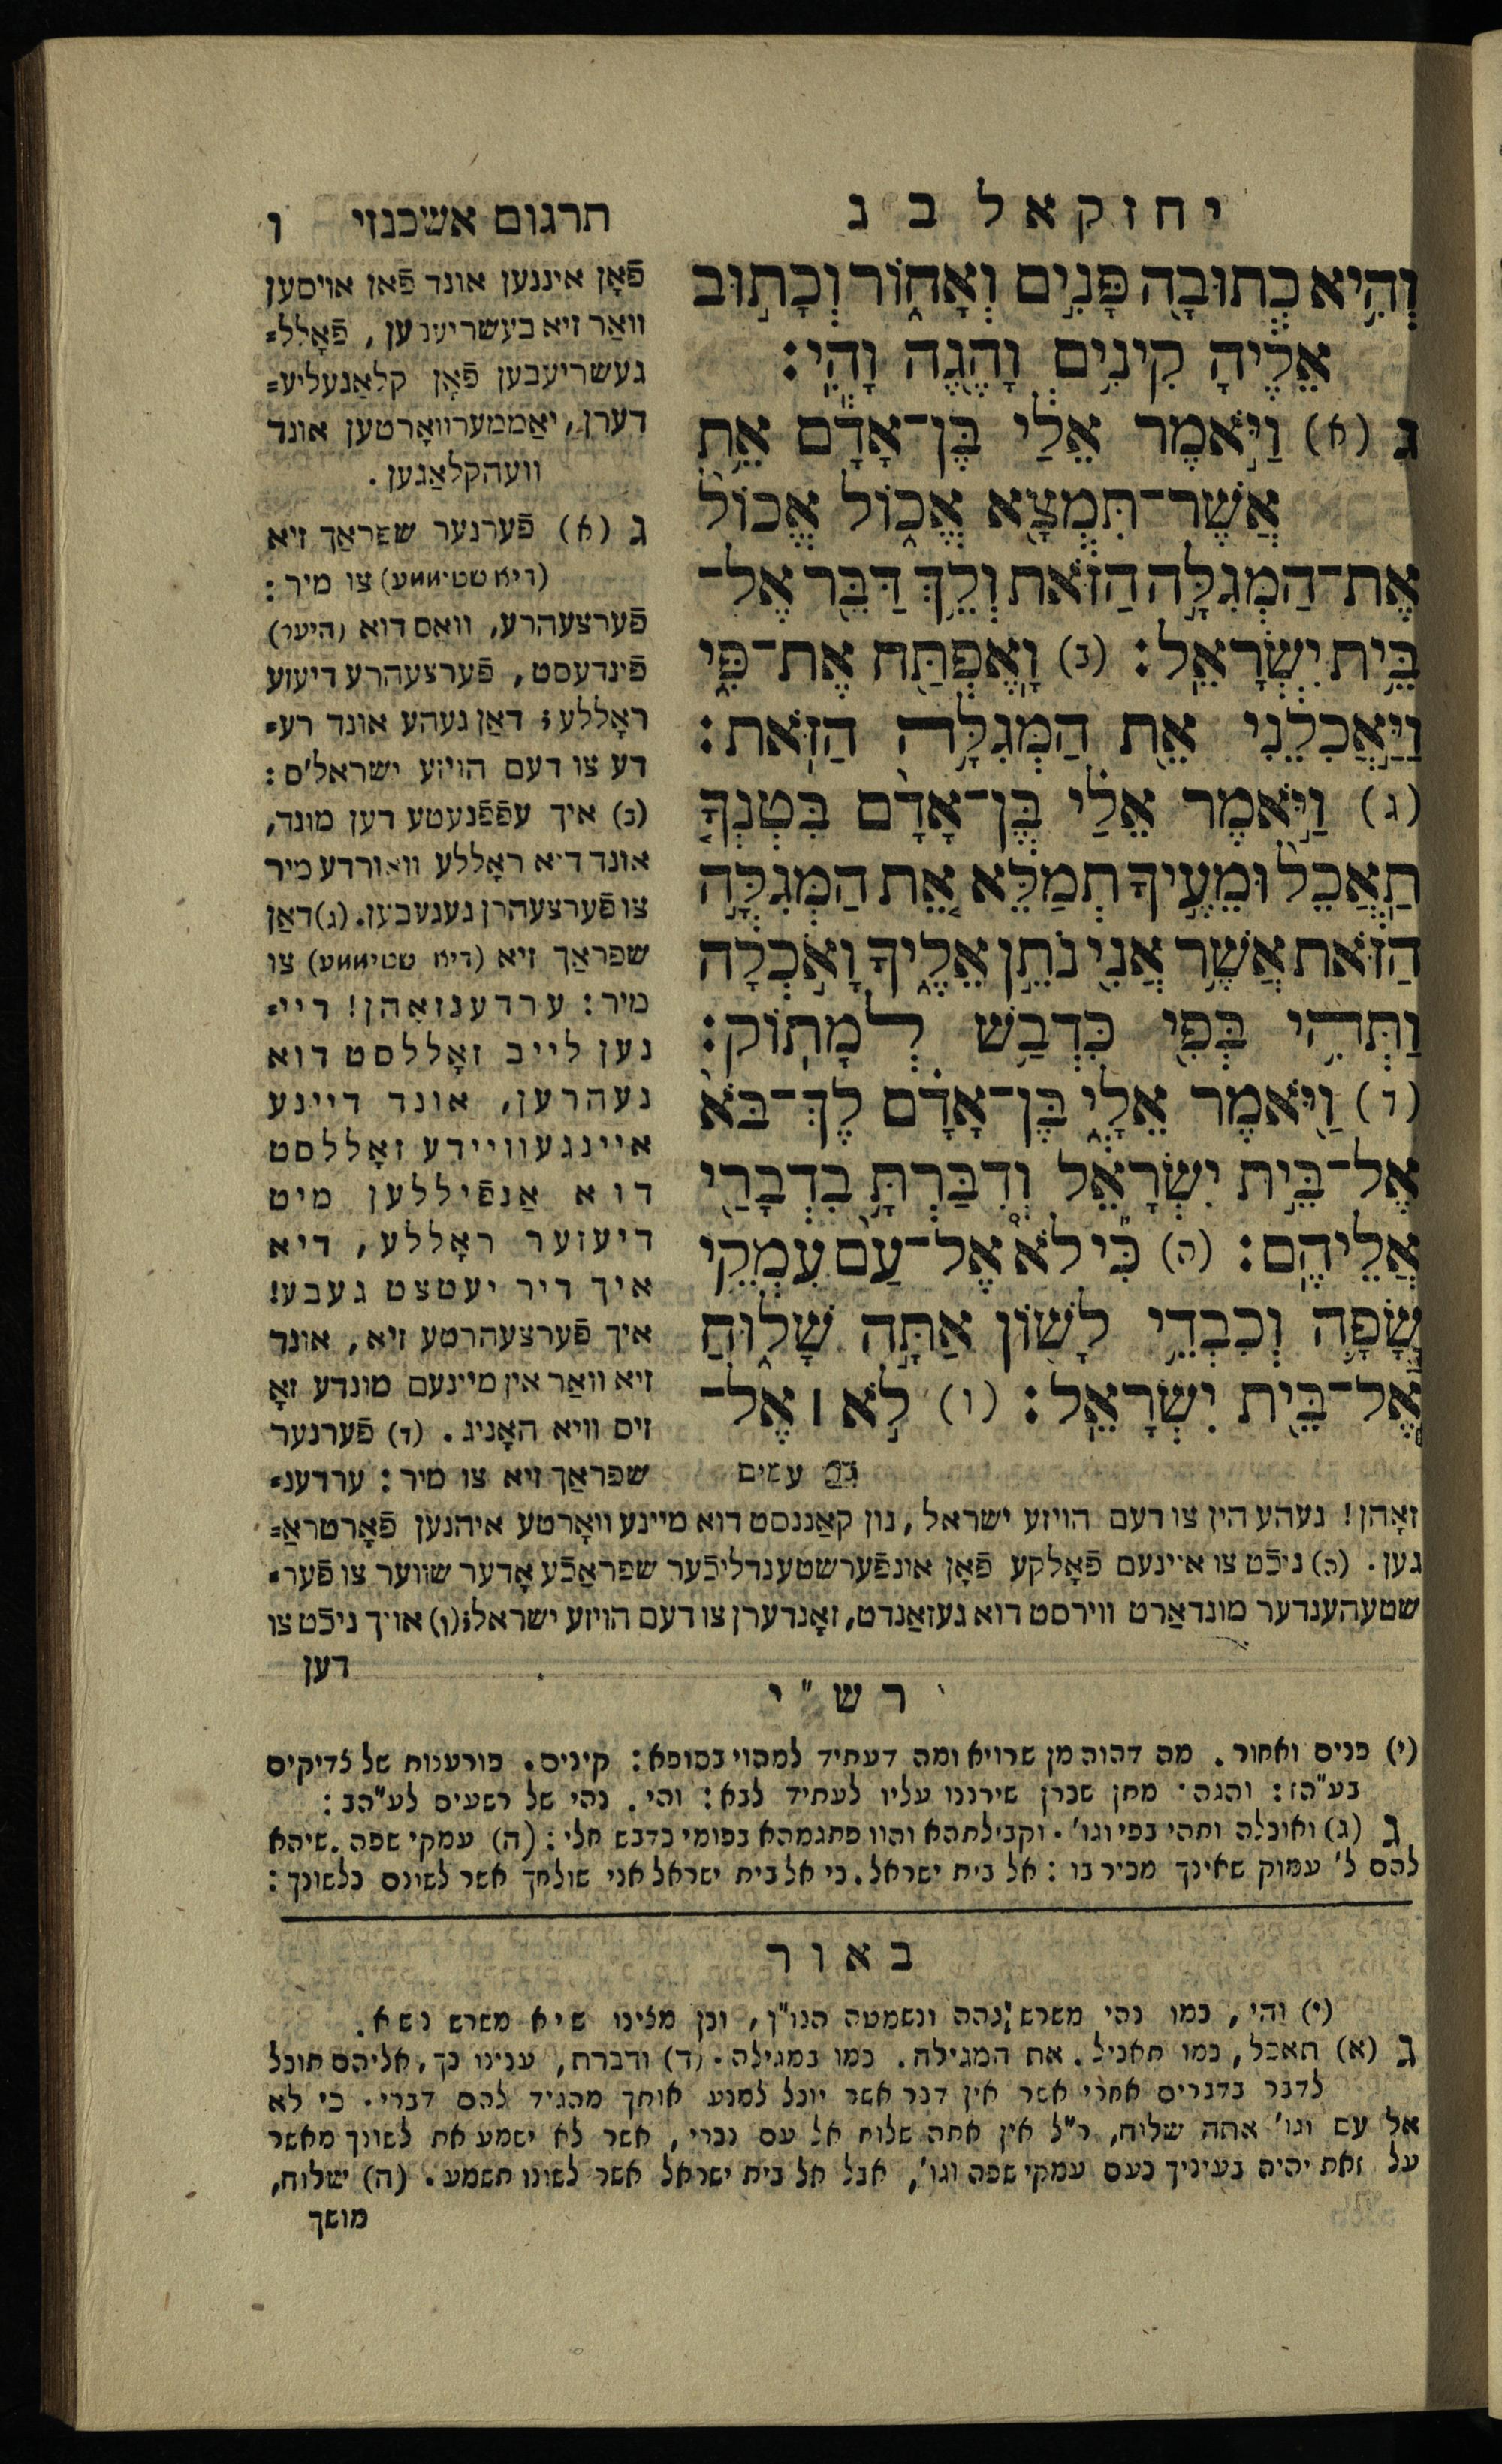 יחזקאל ב ג
וְהִ֥יא כְתוּבָ֖ה פָּנִ֣ים וְאָח֑וֹר וְכָת֣וּב
אֵלֶ֔יהָ קִינִ֥ים וָהֶ֖גֶה וָהִֽי׃
ג (א) וַיֹּ֣אמֶר אֵלַ֔י בֶּן־אָדָ֕ם אֵ֥ת
אֲשֶׁר־תִּמְצָ֖א אֱכ֑וֹל אֱכוֹל֙
אֶת־הַמְּגִלָּ֣ה הַזֹּ֔את וְלֵ֥ךְ דַּבֵּ֖ר אֶל־
בֵּ֥ית יִשְׂרָאֵֽל׃ (ב) וָאֶפְתַּ֖ח אֶת־פִּ֑י
וַיַּ֣אֲכִלֵ֔נִי אֵ֖ת הַמְּגִלָּ֥ה הַזֹּֽאת׃
(ג) וַיֹּ֣אמֶר אֵלַ֗י בֶּן־אָדָם֙ בִּטְנְךָ֤
תַֽאֲכֵל֙ וּמֵעֶ֣יךָ תְמַלֵּ֔א אֵ֚ת הַמְּגִלָּ֣ה
הַזֹּ֔את אֲשֶׁ֥ר אֲנִ֖י נֹתֵ֣ן אֵלֶ֑יךָ וָאֹ֣כְלָ֔ה
וַתְּהִ֥י בְּפִ֖י כִּדְבַ֥שׁ לְמָתֽוֹק׃
(ד) וַיֹּ֖אמֶר אֵלָ֑י בֶּן־אָדָ֗ם לֶךְ־בֹּא֙
אֶל־בֵּ֣ית יִשְׂרָאֵ֔ל וְדִבַּרְתָּ֥ בִדְבָרַ֖י
אֲלֵיהֶֽם׃ (ה) כִּ֡י לֹא֩ אֶל־עַ֨ם עִמְקֵ֥י
שָׂפָ֛ה וְכִבְדֵ֥י לָשׁ֖וֹן אַתָּ֣ה שָׁל֑וּחַ
אֶל־בֵּ֖ית יִשְׂרָאֵֽל׃ (ו) לֹ֣א ׀ אֶל־
עמים
תרגום אשכנזי ו
פֿאָן איננען אונד פֿאן אויסען
וואַר זיא בעשריעבען, פֿאָלל=
געשריעבען פֿאָן קלאַגעליע=
דערן, יאַממערוואָרטען אונד
וועהקלאַגען.
ג (א) פֿערנער שפראַך זיא
(דיא שטיממע) צו מיר:
פֿערצעהרע, וואַס דוא (היער)
פֿינדעסט, פֿערצעהרע דיעזע
ראָללע; דאַן געהע אונד רע=
דע צו דעם הויזע ישראל'ס:
(ב) איך עפֿפֿנעטע דען מונד,
אונד דיא ראָללע וואורדע מיר
צו פֿערצעהרן געגעבען. (ג) דאַן
שפראַך זיא (דיא שטיממע) צו
מיר: ערדענזאָהן! דיי=
נען לייב זאָללסט דוא
נעהרען, אונד דיינע
איינגעוויידע זאָללסט
דוא אַנפֿיללען מיט
דיעזער ראָללע, דיא
איך דיר יעטצט געבע!
איך פֿערצעהרטע זיא, אונד
זיא וואַר אין מיינעם מונדע זאָ
זים וויא האָניג. (ד) פֿערנער
שפראַך זיא צו מיר: ערדענ=
זאָהן! געהע הין צו דעם הויזע ישראל, נון קאַננסט דוא מיינע וואָרטע איהנען פֿאָרטראַ=
גען. (ה) ניכֿט צו איינעם פֿאָלקע פֿאָן אונפֿערשטענדליכֿער שפראַכֿע אָדער שווער צו פֿער=
שטעהענדער מונדאַרט ווירסט דוא געזאַנדט, זאָנדערן צו דעם הויזע ישראל; (ו) אויך ניכֿט צו
דען
רש"י
(י) פנים ואחור. מה דהוה מן שרויא ומה דעתיד למהוי בסופא: קינים. פורענות של צדיקים
בע"הז: והגה. מתן שכרן שירננו עליו לעתיד לבא: והי. נהי של רשעים לע"הב:
ג (ג) ואוכלה ותהי בפי וגו'. וקבילתהא והוו פתגמהא בפומי כדבש חלי: (ה) עמקי שפה. שיהא
להם ל' עמוק שאינך מכיר בו: אל בית ישראל. כי אל בית ישראל אני שולחך אשר לשונם כלשונך:
באור
(י) והי, כמו נהי משרש נהה ונשמטה הנו"ן, וכן מצינו שיא משרש נשא.
ג (א) תאכל, כמו תאכיל. את המגילה. כמו במגילה. (ד) ודברת, ענינו כך, אליהם תוכל
לדבר בדברים אחרי אשר אין דבר אשר יוכל למנע אותך מהגיד להם דברי. כי לא
אל עם וגו' אתה שלוח, ר"ל אין אתה שלוח אל עם נכרי, אשר לא ישמע את לשונך מאשר
על זאת יהיה בעיניך כעם עמקי שפה וגו', אבל אל בית ישראל אשר לשונו תשמע. (ה) שלוח,
מושך